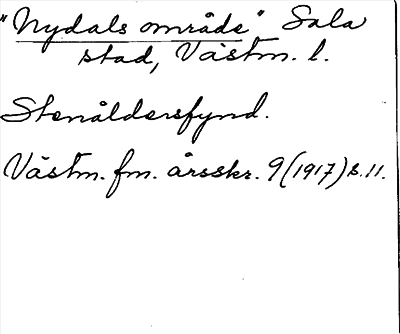 "Nydals område" Sala
stad, Västm. l.
Stenåldersfynd.
Västm. fm. årsskr. 9 (1917) s. 11.